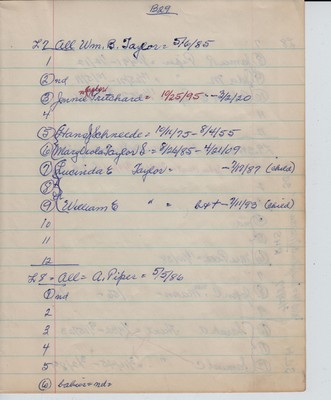 B29
L7 All Wm. B. Taylor = 5/6/85
1
② nd
Taylor
③ Jennie Pritchard = 10/25/95 -- 3/2/20
4
⑤ Hans Schneede = 10/11/75 - 8/4/55
⑥ Mary Viola Taylor S = 8/26/85 - 4/21/09
⑦ Lucinda E Taylor = - 7/13/87 (child)
⑧
⑨ William E " " b x t - 7/11/83 (child)
10
11
12
L 8 = All = A. Piper = 5/5/86
① nd
2
3
4
5
⑥ babies = nd =